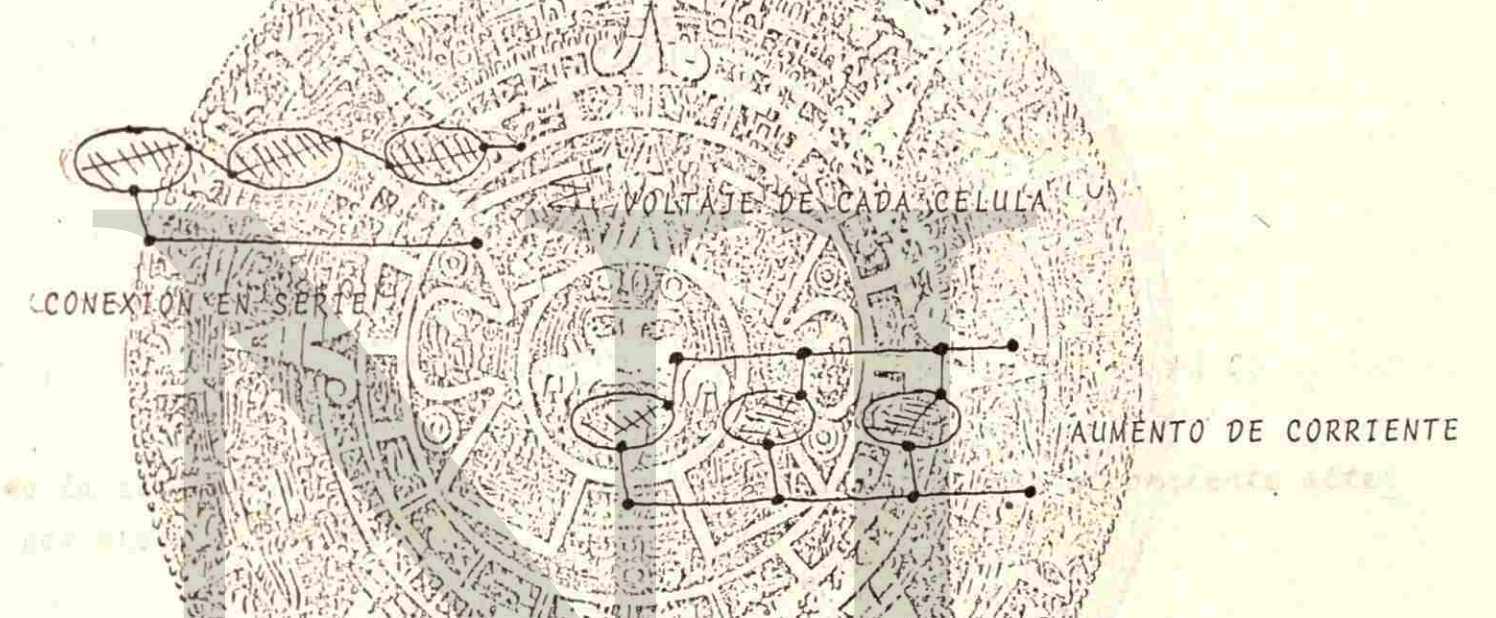 VOLTAJE DE CADA CELULA
CONEXION EN SERIE
AUMENTO DE CORRIENTE